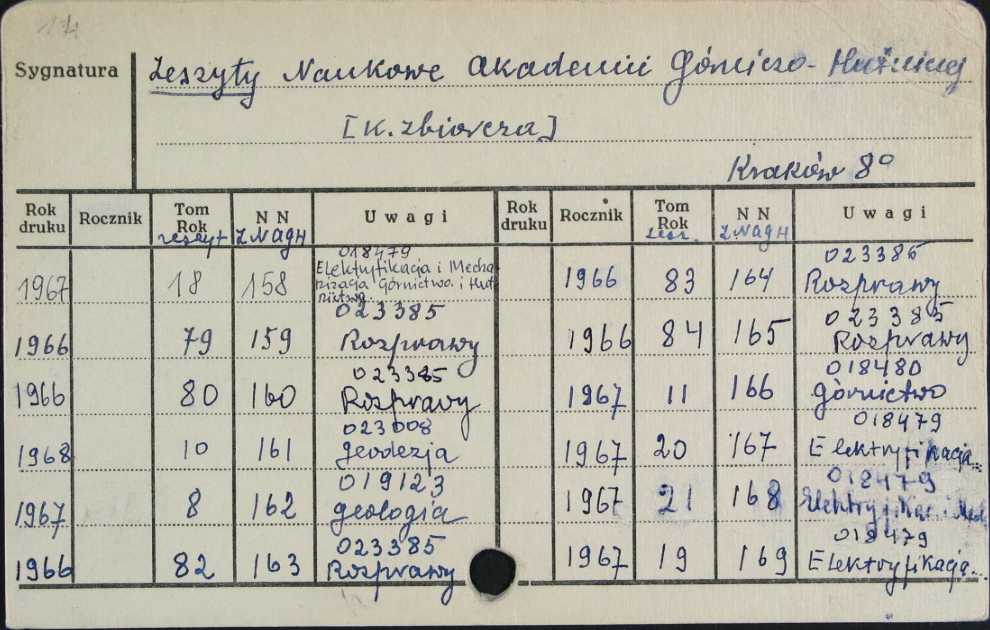 14
Sygnatura
Zeszyty Naukowe Akademii Górniczo-Hutniczej
[K. zbiorcza]
Kraków 8°
Rok druku Rocznik Tom Rok zeszyt N N Z.NAGH Uwagi
018479
1967 18 158 Elektryfikacja i Mechanizacja Górnictwa i Hutnictwa
023385
1966 79 159 Rozprawy
023385
1966 80 160 Rozprawy
023008
1968 10 161 Geodezja
019123
1967 8 162 Geologia
023385
1966 82 163 Rozprawy
Rok druku Rocznik Tom Rok zesz. N N Z.NAGH Uwagi
023385
1966 83 164 Rozprawy
023385
1966 84 165 Rozprawy
018480
1967 11 166 Górnictwo
018479
1967 20 167 Elektryfikacja...
018479
1967 21 168 Elektryfikac. i Mech.
018479
1967 19 169 Elektryfikacja...